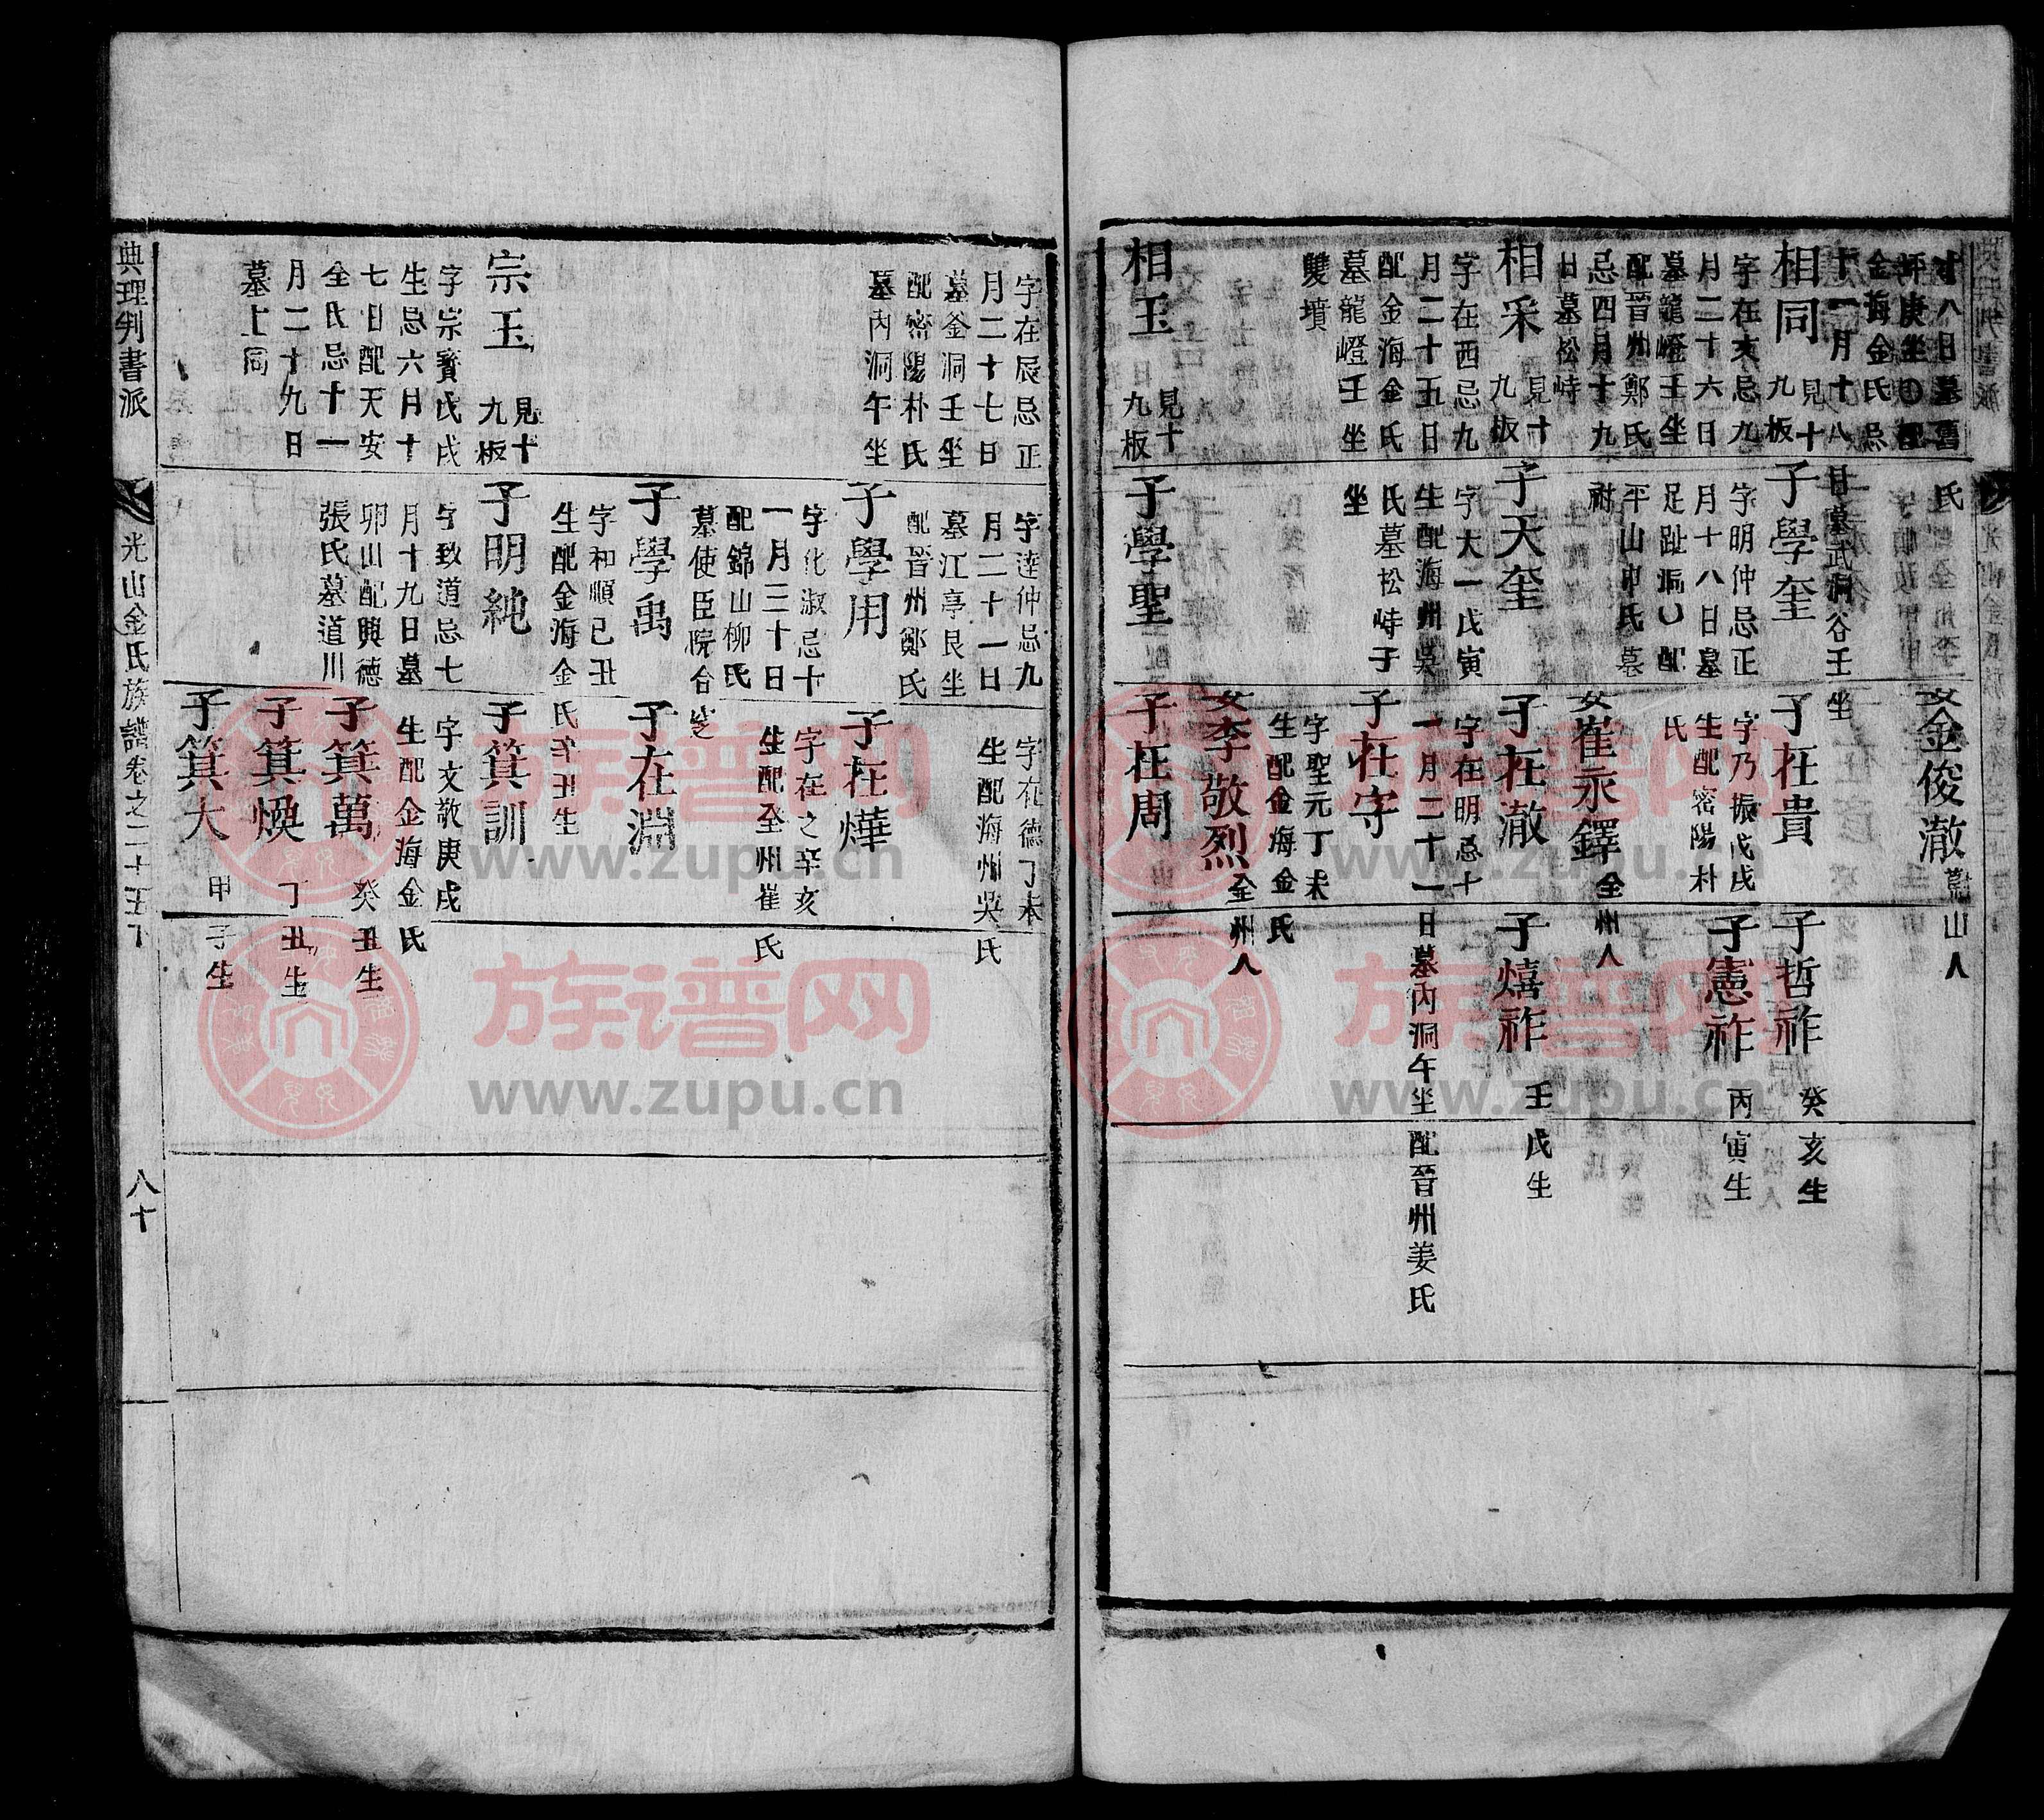 十八日墓舊
坪庚坐〇配
金海金氏忌
十一月十八
日墓武洞谷壬
坐
相同 見十九板
字在亥忌九
月二十六日
墓龍嶝壬坐
配晉州鄭氏
忌四月十九
日墓松峙
相采 見十九板
字在酉忌九
月二十五日
配金海金氏
墓龍嶝壬坐
雙墳
相玉 見十九板
氏
子學奎
字明仲忌正
月十八日墓
足趾洞〇配
平山申氏墓
祔
子天奎
字大一戊寅
生配海州吳
氏墓松峙子
坐
子學聖
女金俊澈 山人
子在貴
字乃振戊戌
生配密陽朴
氏
女崔永鐸 全州人
子在澈
字在明忌十
一月二十一日墓內洞午坐配晉州姜氏
子在守
字聖元丁未
生配金海金氏
女李敬烈 全州人
子在周
子哲祚 癸亥生
子憲祚 丙寅生
子熺祚 壬戌生
字在辰忌正
月二十七日
墓釜洞壬坐
配密陽朴氏
墓內洞午坐
宗玉 見十九板
字宗寶氏戌
生忌六月十
七日配天安
全氏忌十一
月二十九日
墓上同
字達仲忌九
月二十一日
墓江亭艮坐
配晉州鄭氏
子學用
字化淑忌十
一月三十日
配錦山柳氏
墓使臣院合窆
子學禹
字和順己丑
生配金海金氏辛丑生
子明純
字致道忌七
月十九日墓
卯山配興德
張氏墓道川
字在德丁未
生配海州吳氏
子在燁
字在之辛亥
生配全州崔氏
子在淵
子箕訓
字文敬庚戌
生配金海金氏
子箕萬 癸丑生
子箕煥 丁丑生
子箕大 甲子生
典理判書派
光山金氏族譜卷之二十五下
八十
族谱网
www.zupu.cn
族谱网
www.zupu.cn
族谱网
www.zupu.cn
族谱网
www.zupu.cn